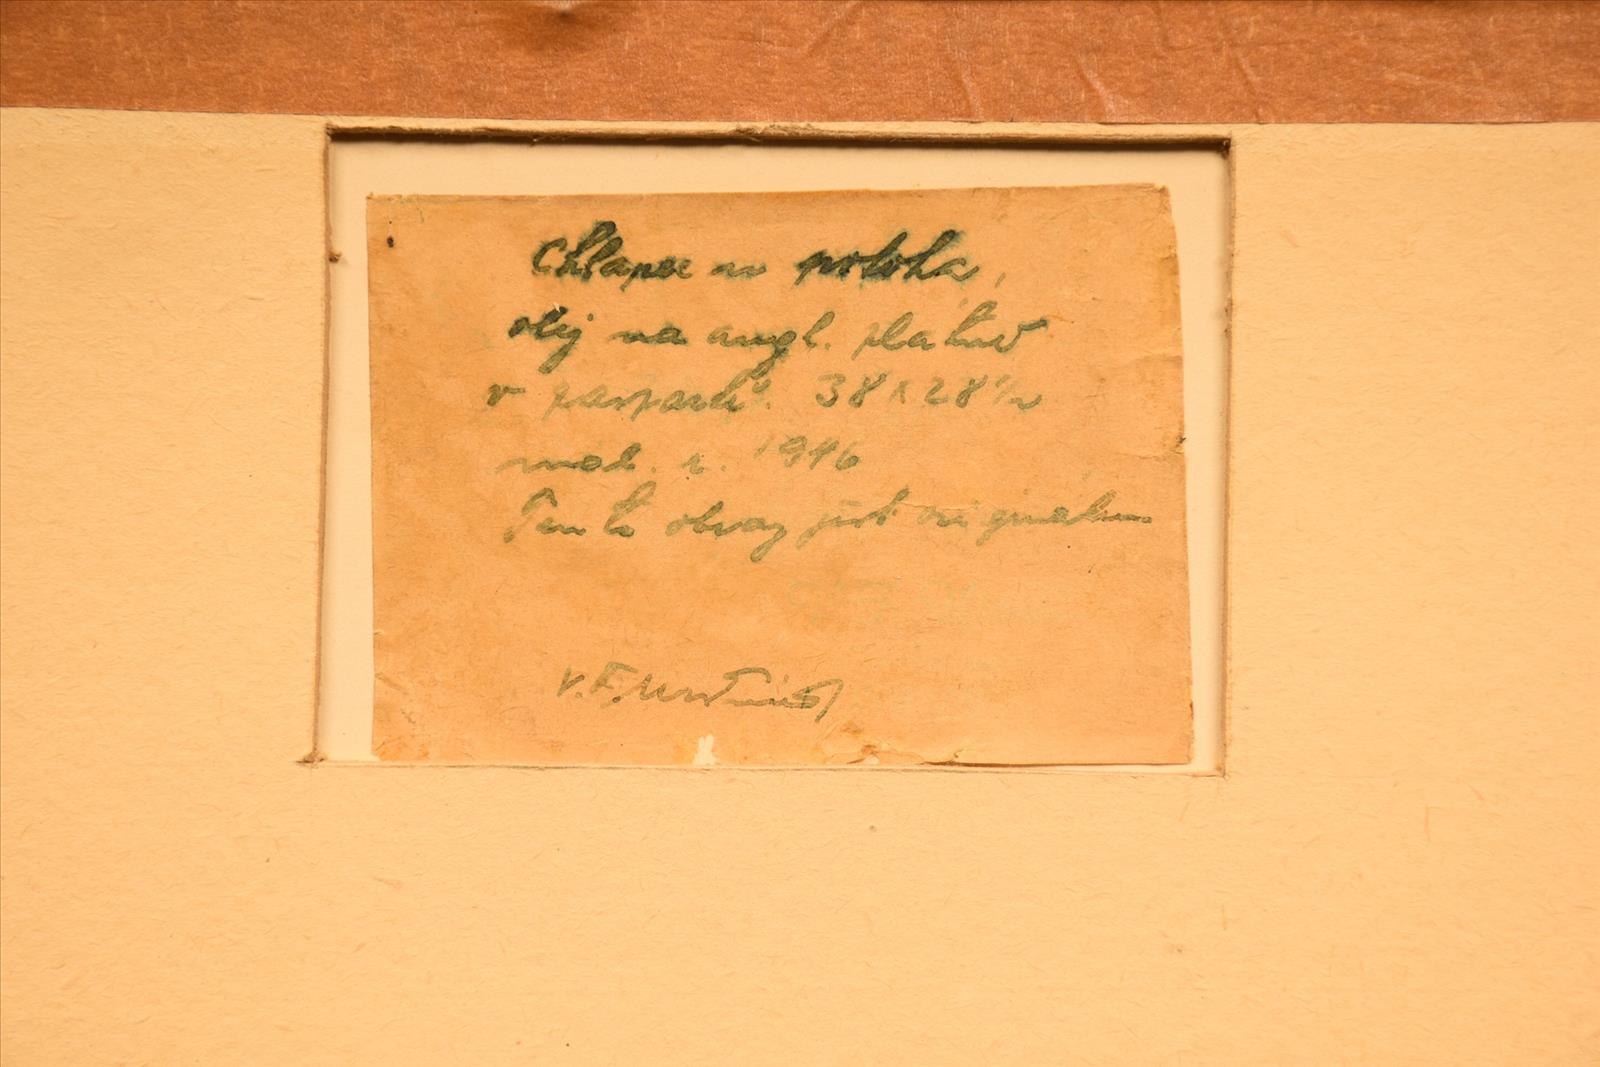 Chlapec u potoka,
olej na angl. plátně
v paspartě. 38 x 28 1/2
mal. r. 1946
Tento obraz jest originálem
V. F.